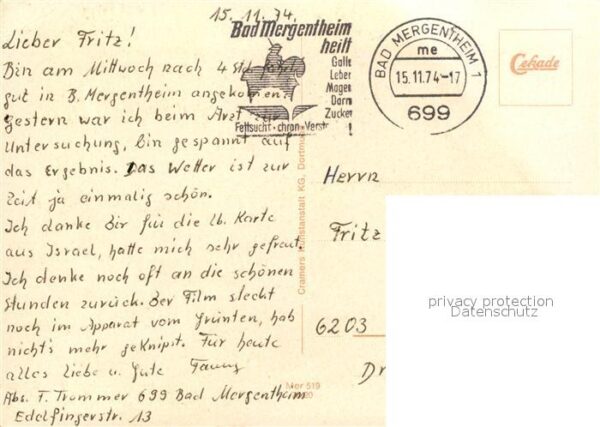 15. 11. 74.
Lieber Fritz!
Bin am Mittwoch nach 4 Std.
gut in B. Mergentheim angekommen
gestern war ich beim Arzt zur
Untersuchung, bin gespannt auf
das Ergebnis. Das Wetter ist zur
Zeit ja einmalig schön.
Ich danke Dir für die lb. Karte
aus Israel, hatte mich sehr gefreut.
Ich denke noch oft an die schönen
Stunden zurück. Der Film steckt
noch im Apparat vom Grünten, hab
nicht's mehr geknipst. Für heute
alles Liebe u. Gute
Abs. F. Trommer 699 Bad Mergentheim
Edelfingerstr. 13
Bad Mergentheim
heilt
Galle
Leber
Magen
Darm
Zucker
Fettsucht · chron · Verst !
BAD MERGENTHEIM 1
me
15.11.74-17
699
Cekade
Cramers Kunstanstalt KG, Dortmund
Mer 519
Herrn
Fritz
6203
Dr
privacy protection
Datenschutz